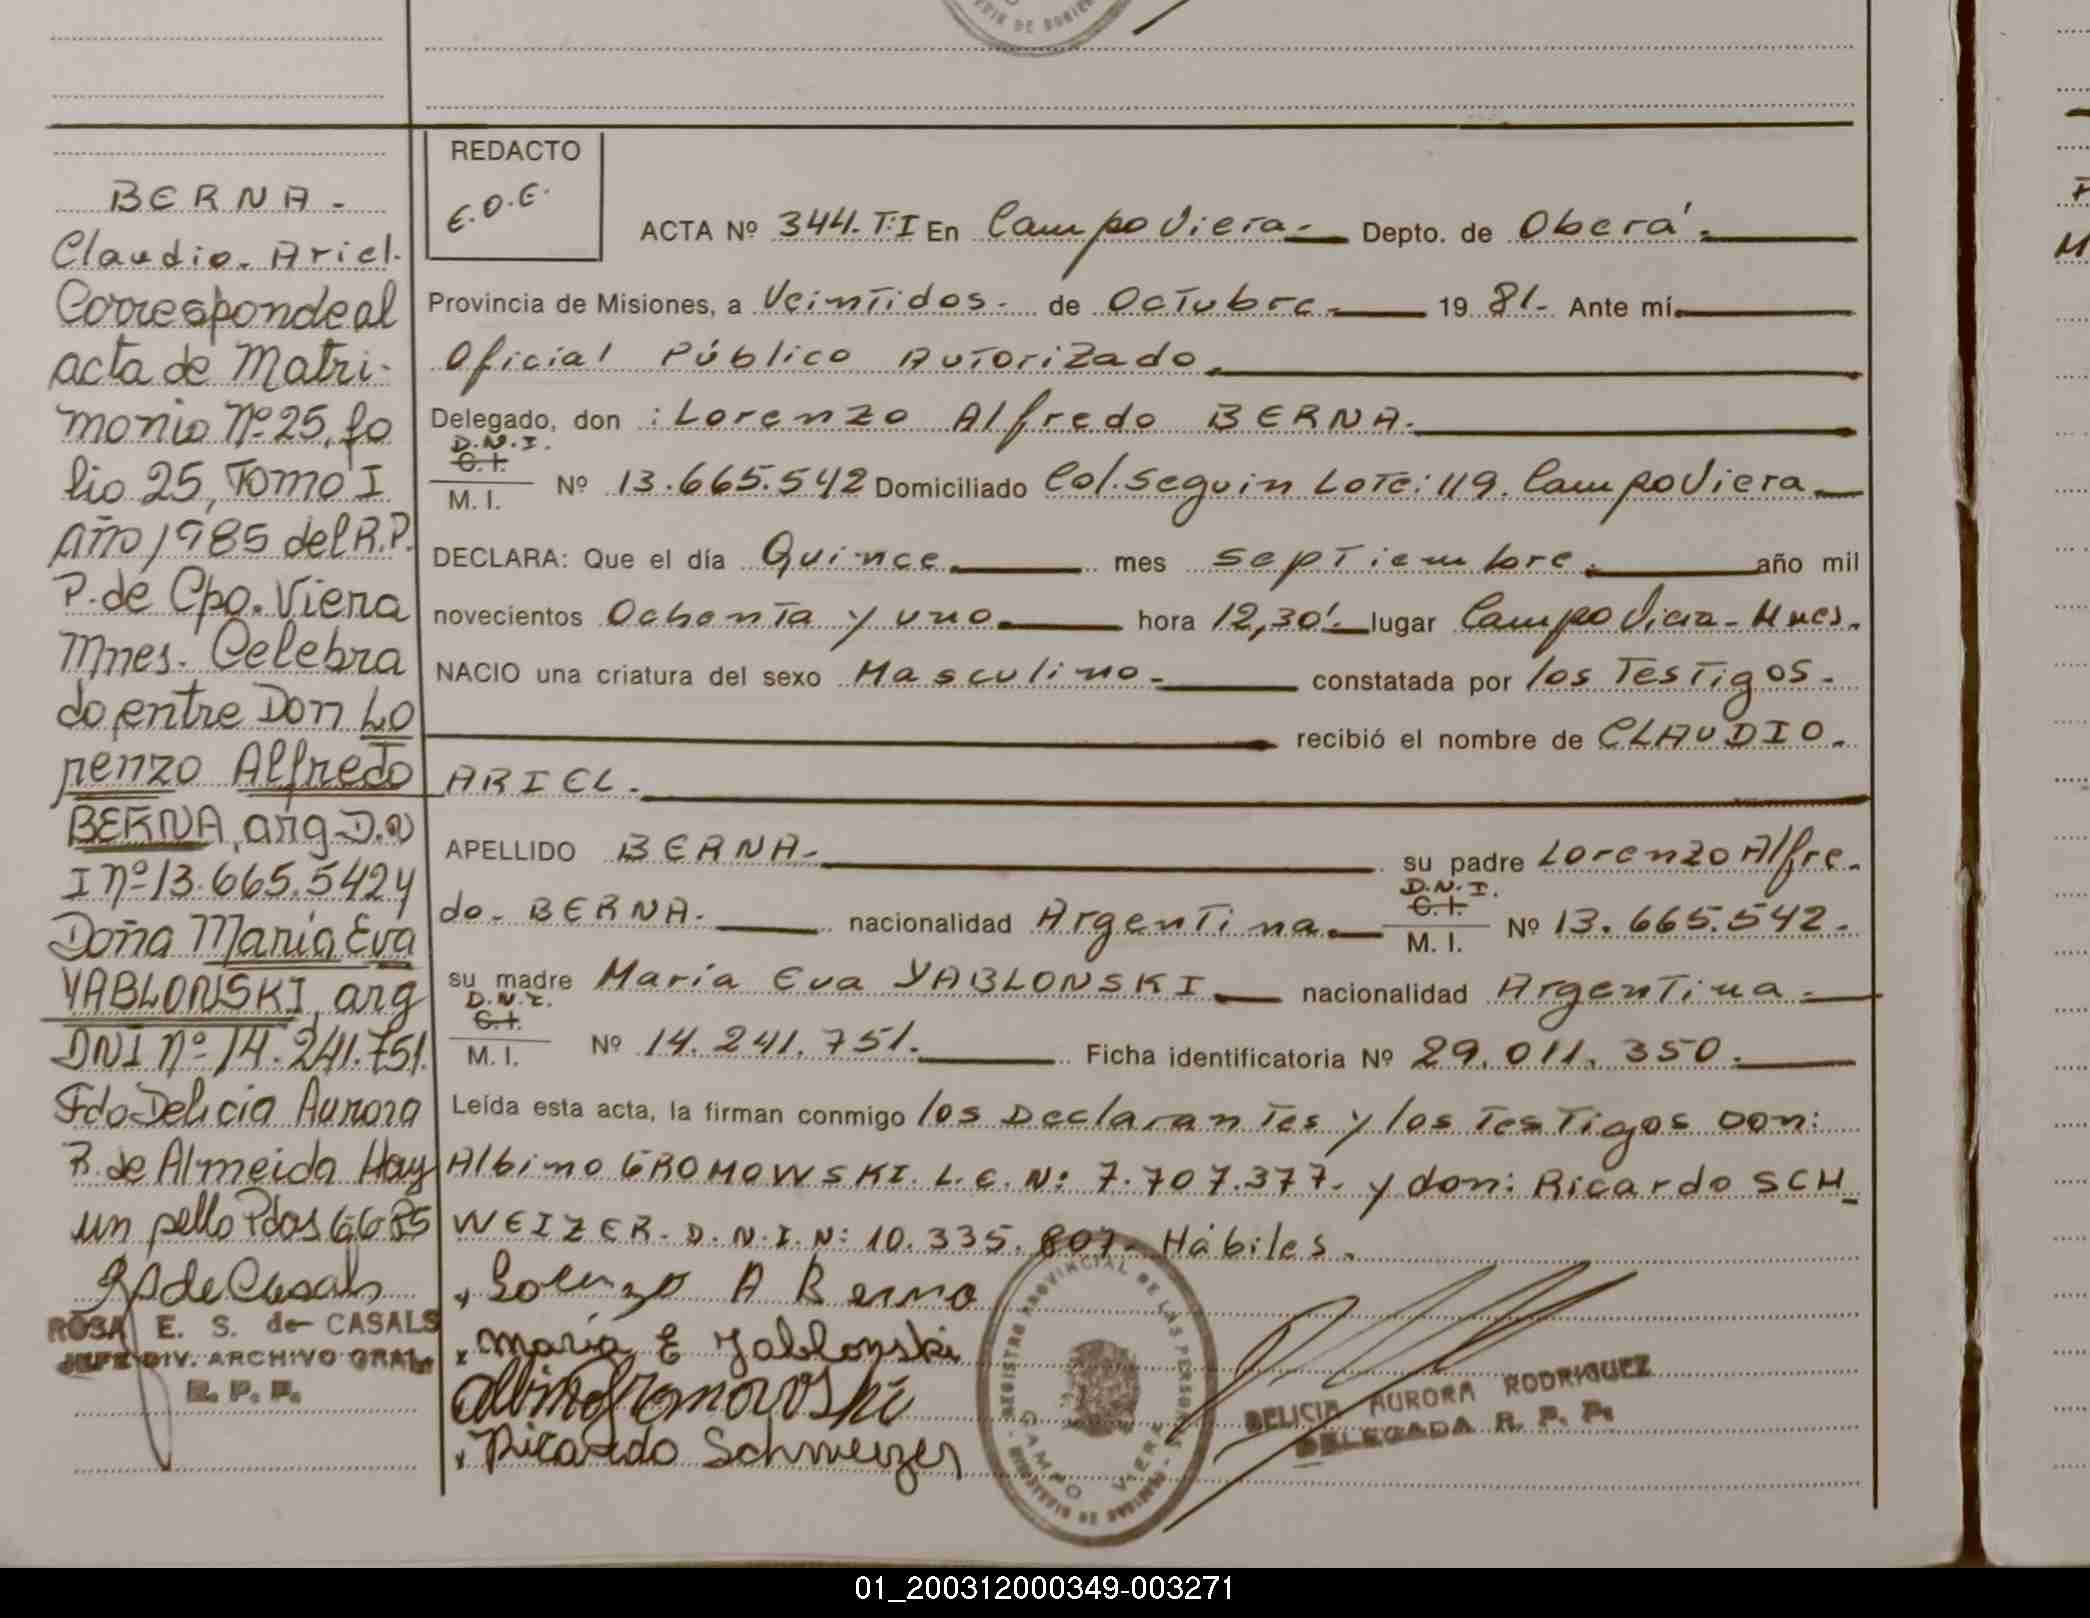 BERNA -
Claudio. Ariel.
Corresponde al
acta de Matri-
monio Nº 25, fo
lio 25, Tomo I
Año 1985 del R.P.
P. de Cpo. Viera
Mnes. Celebra
do entre Don Lo
renzo Alfredo
BERNA, arg D.N
I Nº 13.665.542 y
Doña María Eva
YABLONSKI, arg
DNI Nº 14.241.751.
Fdo Delicia Aurora
R. de Almeida Hay
un sello Pdas 6685
ROSA E. S. de CASALS
JEFE DIV. ARCHIVO GRAL
R. P. P.
REDACTO
E.O.E.
ACTA Nº 344. T:I En Campo Viera.- Depto. de Oberá.
Provincia de Misiones, a Veintidos.- de Octubre.- 19 81.- Ante mí
Oficial Público Autorizado.
Delegado, don : Lorenzo Alfredo BERNA.-
D.N.I.
C.I.
M. I. Nº 13.665.542 Domiciliado Col. Seguin Lote: 119. Campo Viera.
DECLARA: Que el día Quince. mes Septiembre. año mil
novecientos Ochenta y uno. hora 12,30'. lugar Campo Viera - Mnes.
NACIO una criatura del sexo Masculino.- constatada por los Testigos.-
recibió el nombre de CLAUDIO.
ARIEL.
APELLIDO BERNA.- su padre Lorenzo Alfre-
do.- BERNA. nacionalidad Argentina. D.N.I.
C.I.
M. I. Nº 13.665.542.
su madre María Eva YABLONSKI. nacionalidad Argentina.-
D.N.I.
C.I.
M. I. Nº 14.241.751. Ficha identificatoria Nº 29.011.350.
Leída esta acta, la firman conmigo los Declarantes y los Testigos Don:
Albino GROMOWSKI. L.E. N: 7.707.377. y don: Ricardo SCH_
WEIZER. D.N.I. N: 10.335.807.- Hábiles.
Lorenzo A Berna
María E Yablonski
Albino Gromowski
Ricardo Schweizer
REGISTRO PROVINCIAL DE LAS PERSONAS
CAMPO VIERA
DELICIA AURORA RODRIGUEZ
DELEGADA R. P. P.
01_200312000349-003271